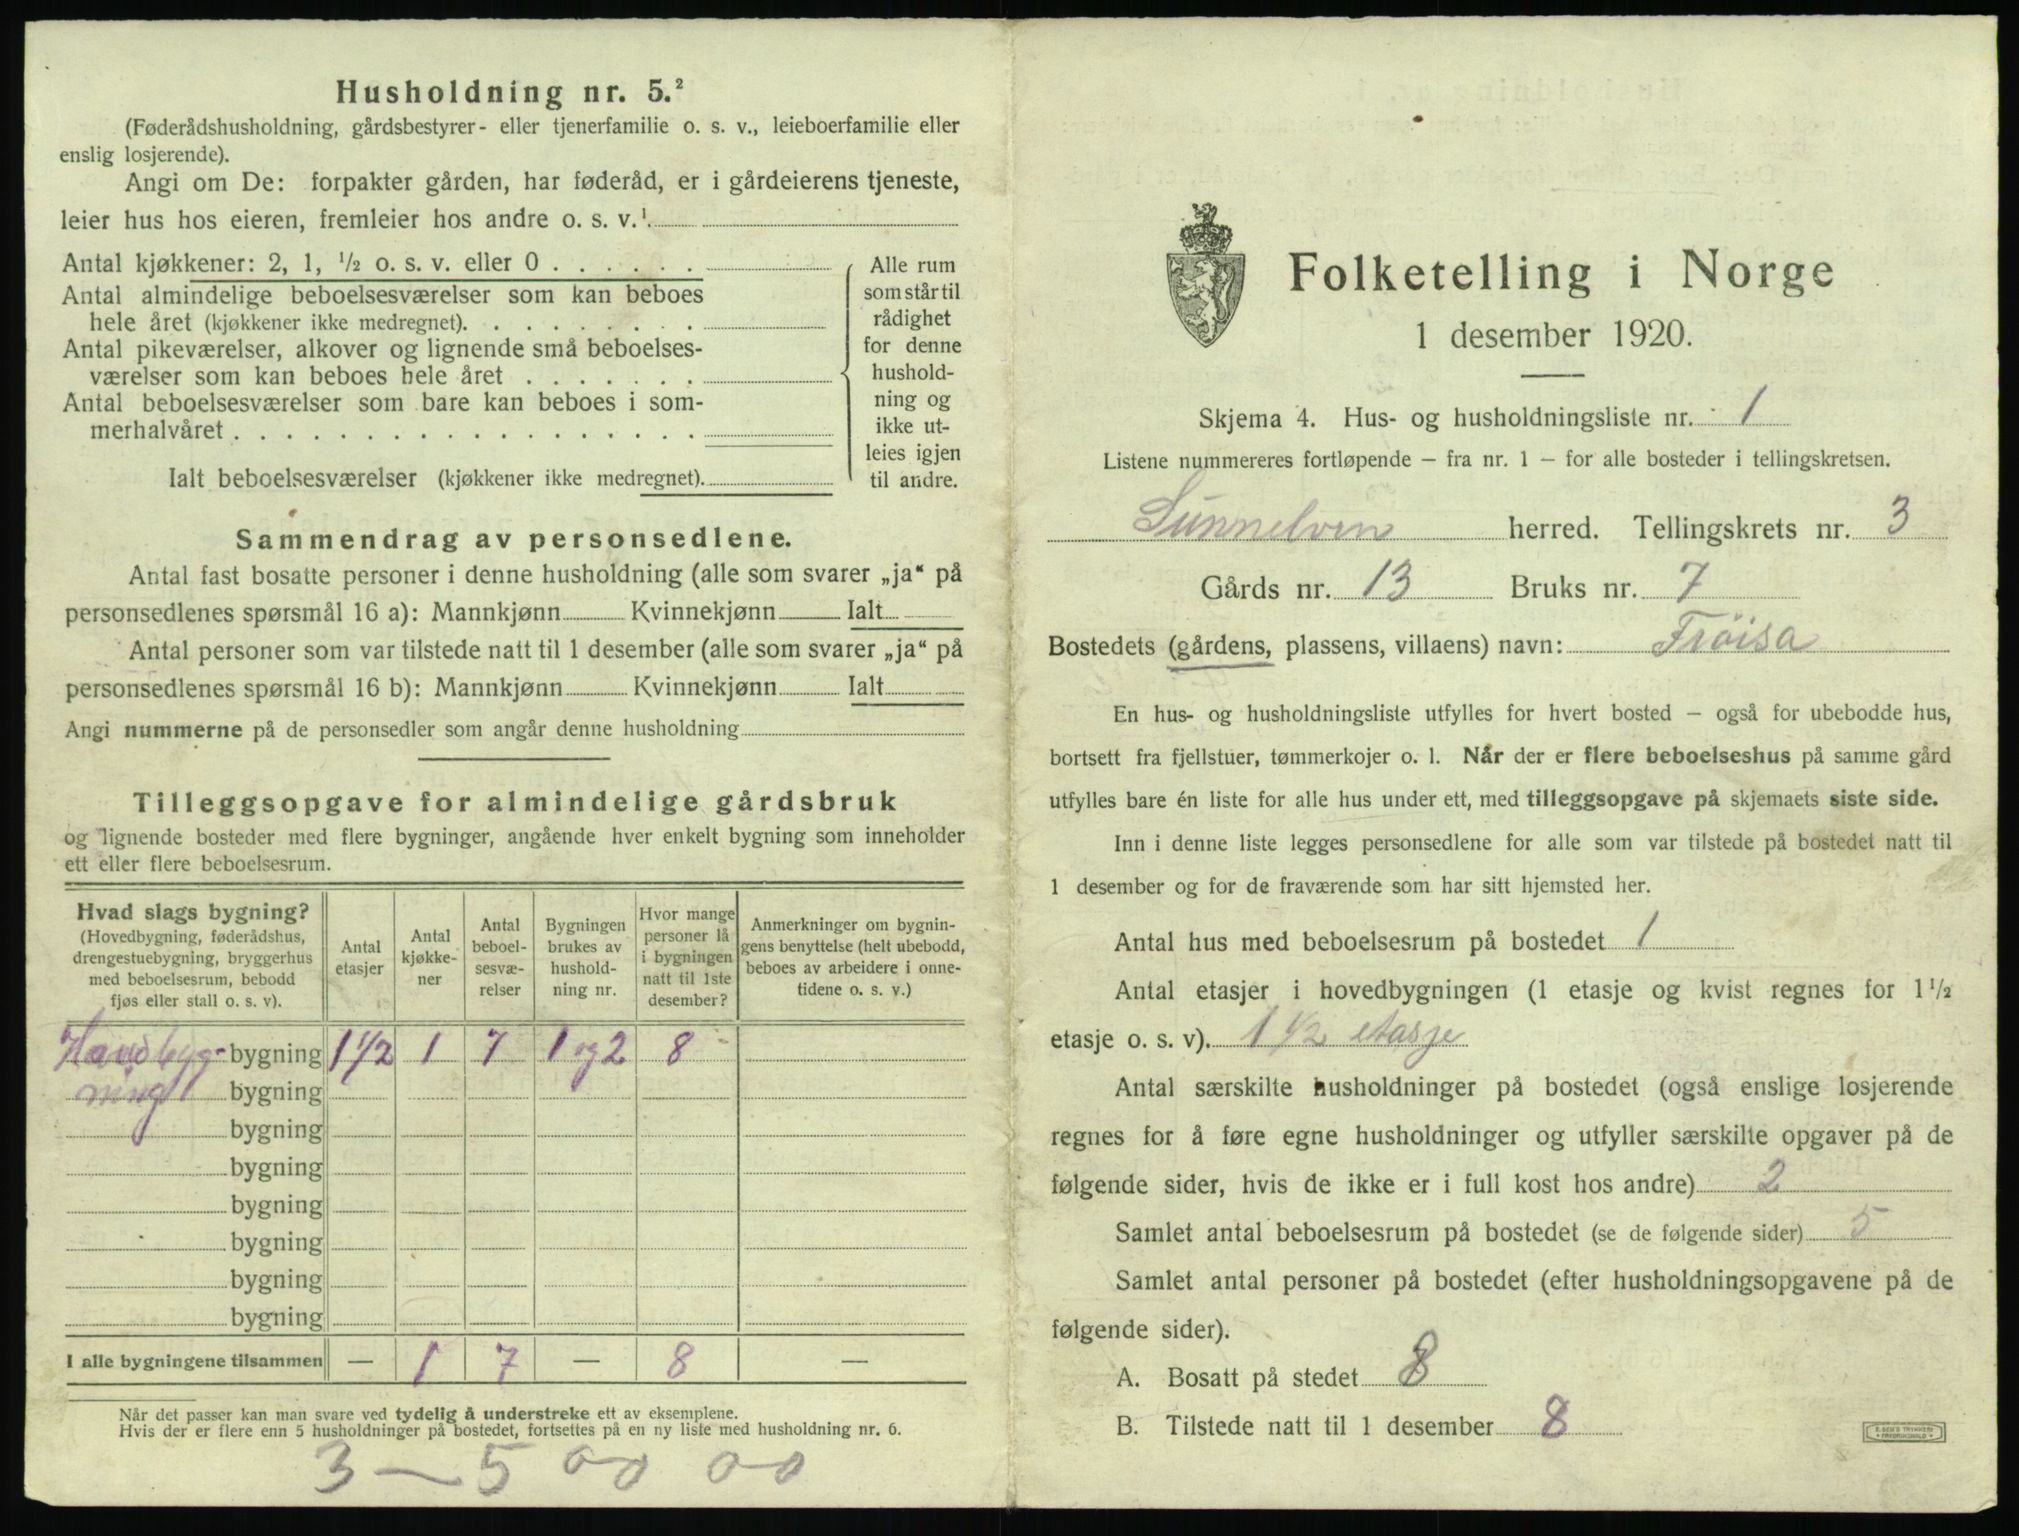 Husholdning nr. 5.²
(Føderådshusholdning, gårdsbestyrer- eller tjenerfamilie o. s. v., leieboerfamilie eller
enslig losjerende).
Angi om De: forpakter gården, har føderåd, er i gårdeierens tjeneste,
leier hus hos eieren, fremleier hos andre o. s. v.¹
Antal kjøkkener: 2, 1, ½ o. s. v. eller 0
Antal almindelige beboelsesværelser som kan beboes
hele året (kjøkkener ikke medregnet).
Antal pikeværelser, alkover og lignende små beboelses-
værelser som kan beboes hele året
Antal beboelsesværelser som bare kan beboes i som-
merhalvåret
Ialt beboelsesværelser (kjøkkener ikke medregnet).
Alle rum
som står til
rådighet
for denne
hushold-
ning og
ikke ut-
leies igjen
til andre.
Sammendrag av personsedlene.
Antal fast bosatte personer i denne husholdning (alle som svarer „ja“ på
personsedlenes spørsmål 16 a): Mannkjønn Kvinnekjønn Ialt
Antal personer som var tilstede natt til 1 desember (alle som svarer „ja“ på
personsedlenes spørsmål 16 b): Mannkjønn Kvinnekjønn Ialt
Angi nummerne på de personsedler som angår denne husholdning
Tilleggsopgave for almindelige gårdsbruk
og lignende bosteder med flere bygninger, angående hver enkelt bygning som inneholder
ett eller flere beboelsesrum.
Hvad slags bygning?
(Hovedbygning, føderådshus,
drengestuebygning, bryggerhus
med beboelsesrum, bebodd
fjøs eller stall o. s. v).
Antal
etasjer
Antal
kjøkke-
ner
Antal
beboel-
sesvæ-
relser
Bygningen
brukes av
hushold-
ning nr.
Hvor mange
personer lå
i bygningen
natt til 1ste
desember?
Anmerkninger om bygnin-
gens benyttelse (helt ubebodd,
beboes av arbeidere i onne-
tidene o. s. v.)
bygning 1 ½ 1 7 1 og 2 8
ning bygning
bygning
bygning
bygning
bygning
bygning
bygning
I alle bygningene tilsammen — 1 7 — 8 —
Når det passer kan man svare ved tydelig å understreke ett av eksemplene.
Hvis der er flere enn 5 husholdninger på bostedet, fortsettes på en ny liste med husholdning nr. 6.
3 — 5 00 00
Folketelling i Norge
1 desember 1920.
Skjema 4. Hus- og husholdningsliste nr. 1
Listene nummereres fortløpende — fra nr. 1 — for alle bosteder i tellingskretsen.
Sunnelven herred. Tellingskrets nr. 3
Gårds nr. 13 Bruks nr. 7
Bostedets (gårdens, plassens, villaens) navn: Frøisa
En hus- og husholdningsliste utfylles for hvert bosted — også for ubebodde hus,
bortsett fra fjellstuer, tømmerkojer o. l. Når der er flere beboelseshus på samme gård
utfylles bare én liste for alle hus under ett, med tilleggsopgave på skjemaets siste side.
Inn i denne liste legges personsedlene for alle som var tilstede på bostedet natt til
1 desember og for de fraværende som har sitt hjemsted her.
Antal hus med beboelsesrum på bostedet 1
Antal etasjer i hovedbygningen (1 etasje og kvist regnes for 1½
etasje o. s. v). 1 ½ etasje
Antal særskilte husholdninger på bostedet (også enslige losjerende
regnes for å føre egne husholdninger og utfyller særskilte opgaver på de
følgende sider, hvis de ikke er i full kost hos andre) 2
Samlet antal beboelsesrum på bostedet (se de følgende sider) 5
Samlet antal personer på bostedet (efter husholdningsopgavene på de
følgende sider).
A. Bosatt på stedet 8
B. Tilstede natt til 1 desember 8